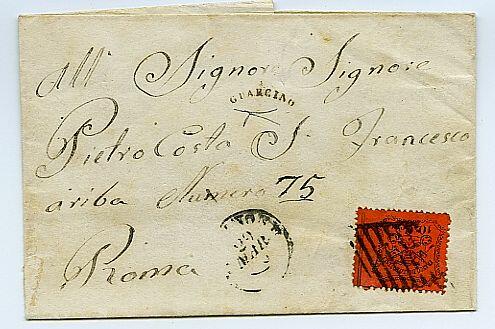 All' Signore Signore
GUARCINO
Pietro Costa S. Francesco
ariba Numero 75
29
MAR
Roma